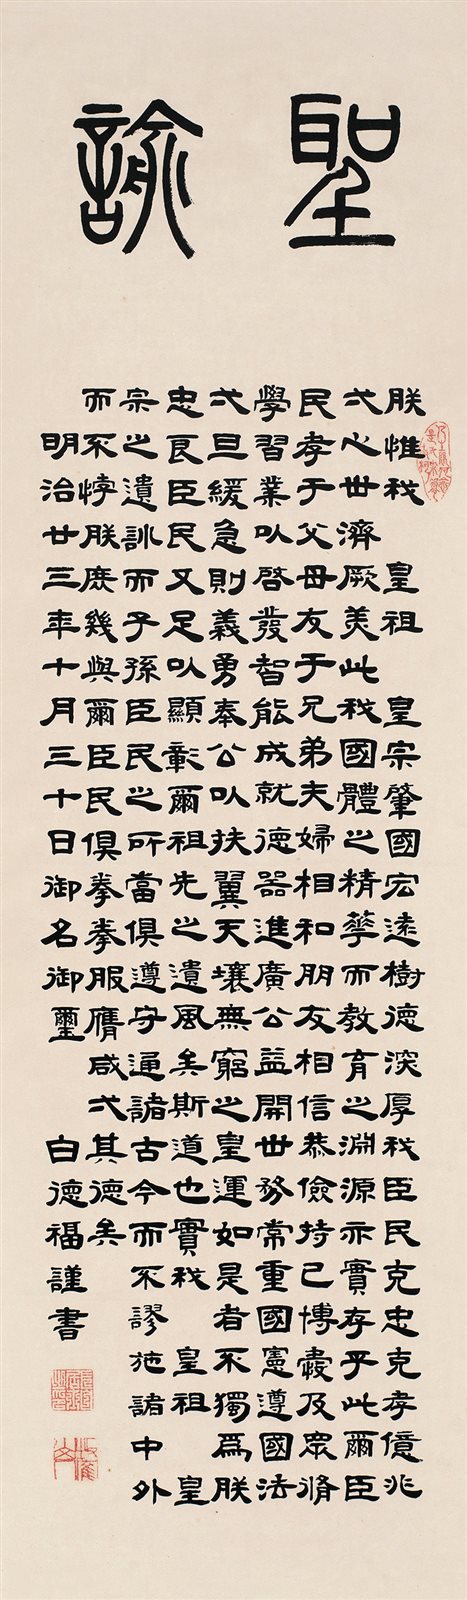 聖諭
朕惟我 皇祖 皇宗肇國宏遠樹德深厚我臣民克忠克孝億兆
弌心世濟厥美此我國體之精華而教育之淵源亦實存乎此爾臣
民孝于父母友于兄弟夫婦相和朋友相信恭儉持己博愛及眾脩
學習業以啓發智能成就德器進廣公益開世務常重國憲遵國法
弌旦緩急則義勇奉公以扶翼天壤無窮之皇運如是者不獨為朕
忠良臣民又足以顯彰爾祖先之遺風矣斯道也實我 皇祖 皇
宗之遺訓而子孫臣民之所當俱遵守通諸古今而不謬施諸中外
而不悖朕庶幾與爾臣民俱拳拳服膺咸弌其德矣
明治廿三年十月三十日御名御璽 白德福謹書